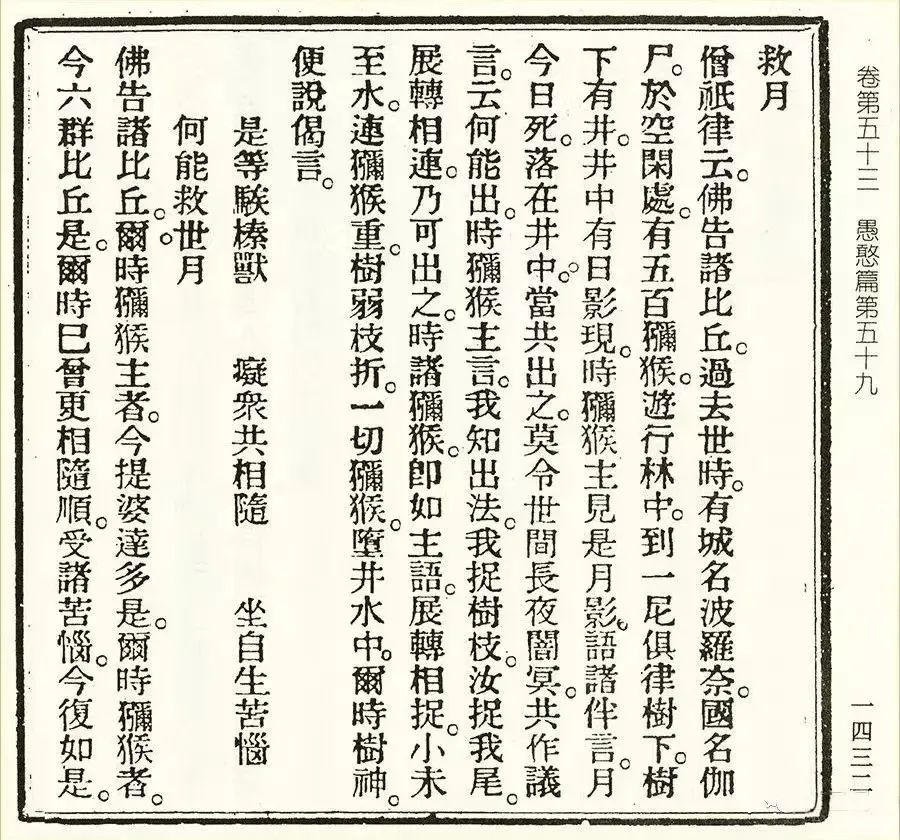 卷第五十三　愚憨篇第五十九
一四三二
救月
僧祇律云。佛告諸比丘。過去世時。有城名波羅奈。國名伽
尸。於空閑處。有五百獼猴。遊行林中。到一尼俱律樹下。樹
下有井。井中有日影現。時獼猴主見是月影。語諸伴言。月
今日死。落在井中。當共出之。莫令世間長夜闇冥。共作議
言。云何能出。時獼猴主言。我知出法。我捉樹枝。汝捉我尾。
展轉相連。乃可出之。時諸獼猴。卽如主語。展轉相捉。小未
至水。連獼猴重。樹弱枝折。一切獼猴。墮井水中。爾時樹神。
便說偈言。
是等騃榛獸　癡衆共相隨　坐自生苦惱
何能救世月
佛告諸比丘。爾時獼猴主者。今提婆達多是。爾時獼猴者。
今六群比丘是。爾時已曾更相隨順。受諸苦惱。今復如是。